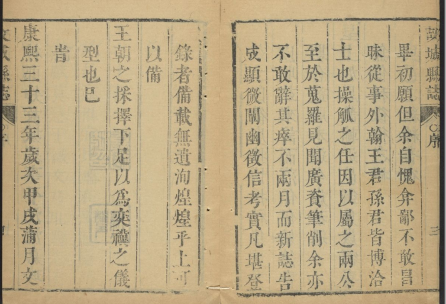 故城縣誌
序
三
畢初願但余自愧弇鄙不敢昌
昧從事外翰王君孫君皆博洽
士也操觚之任因以屬之兩公
至於蒐羅見聞廣賫筆削余亦
不敢辭其瘁不兩月而新誌告
成顯微闡幽徵信考實凡堪登
錄者備載無遺洵煌煌乎上可
以備
王朝之採擇下足以為奕禩之儀
型也已
旹
康熙三十三年歲次甲戌蒲月文
故城縣誌
序